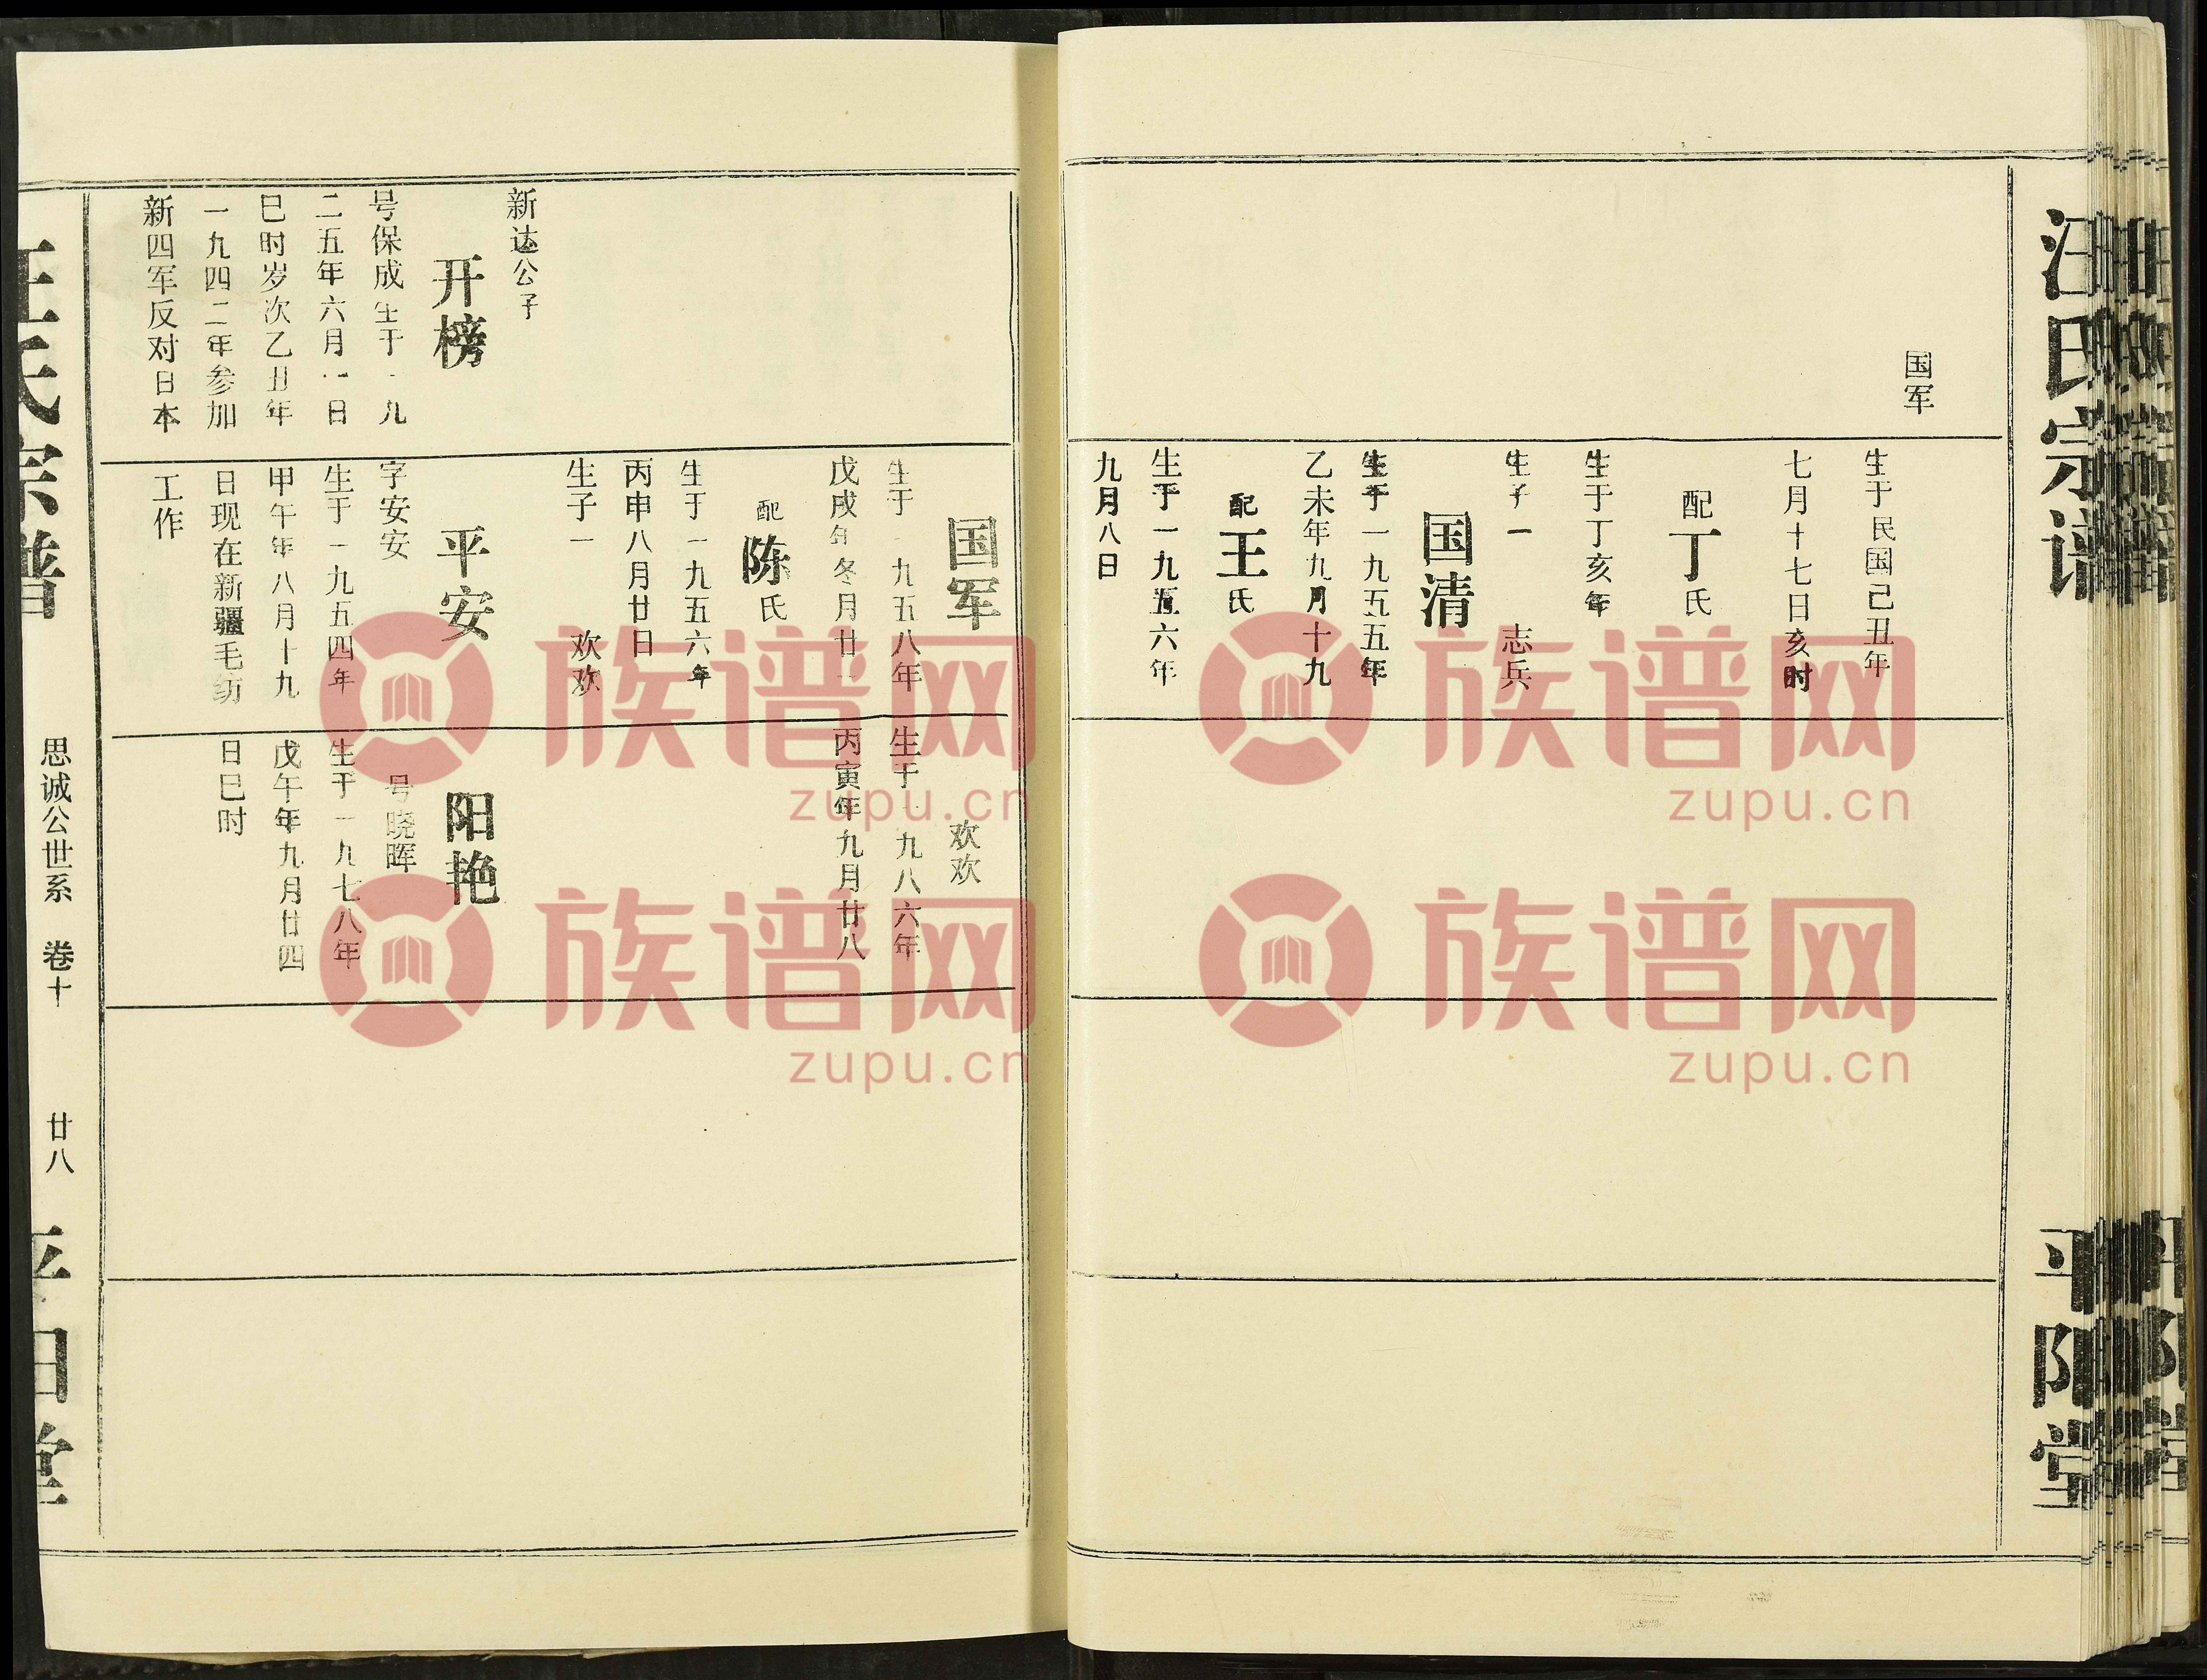 汪氏宗谱
平阳堂
国军
生于民国己丑年
七月十七日亥时
配丁氏
生于丁亥年
生子一 志兵
国清
生于一九五五年
乙未年九月十九
配王氏
生于一九五六年
九月八日
国军
生于一九五八年
戊戌年冬月廿一
配陈氏
生于一九五六年
丙申八月廿日
生子一 欢欢
欢欢
生于一九八六年
丙寅年九月廿八
新达公子
开榜
号保成生于一九
二五年六月一日
巳时岁次乙丑年
一九四二年参加
新四军反对日本
平安
字安安
生于一九五四年
甲午年八月十九
日现在新疆毛纺
工作
阳艳
号晓晖
生于一九七八年
戊午年九月廿四
日巳时
汪氏宗谱
思诚公世系 卷十
廿八
平阳堂
族谱网
zupu.cn
族谱网
zupu.cn
族谱网
zupu.cn
族谱网
zupu.cn